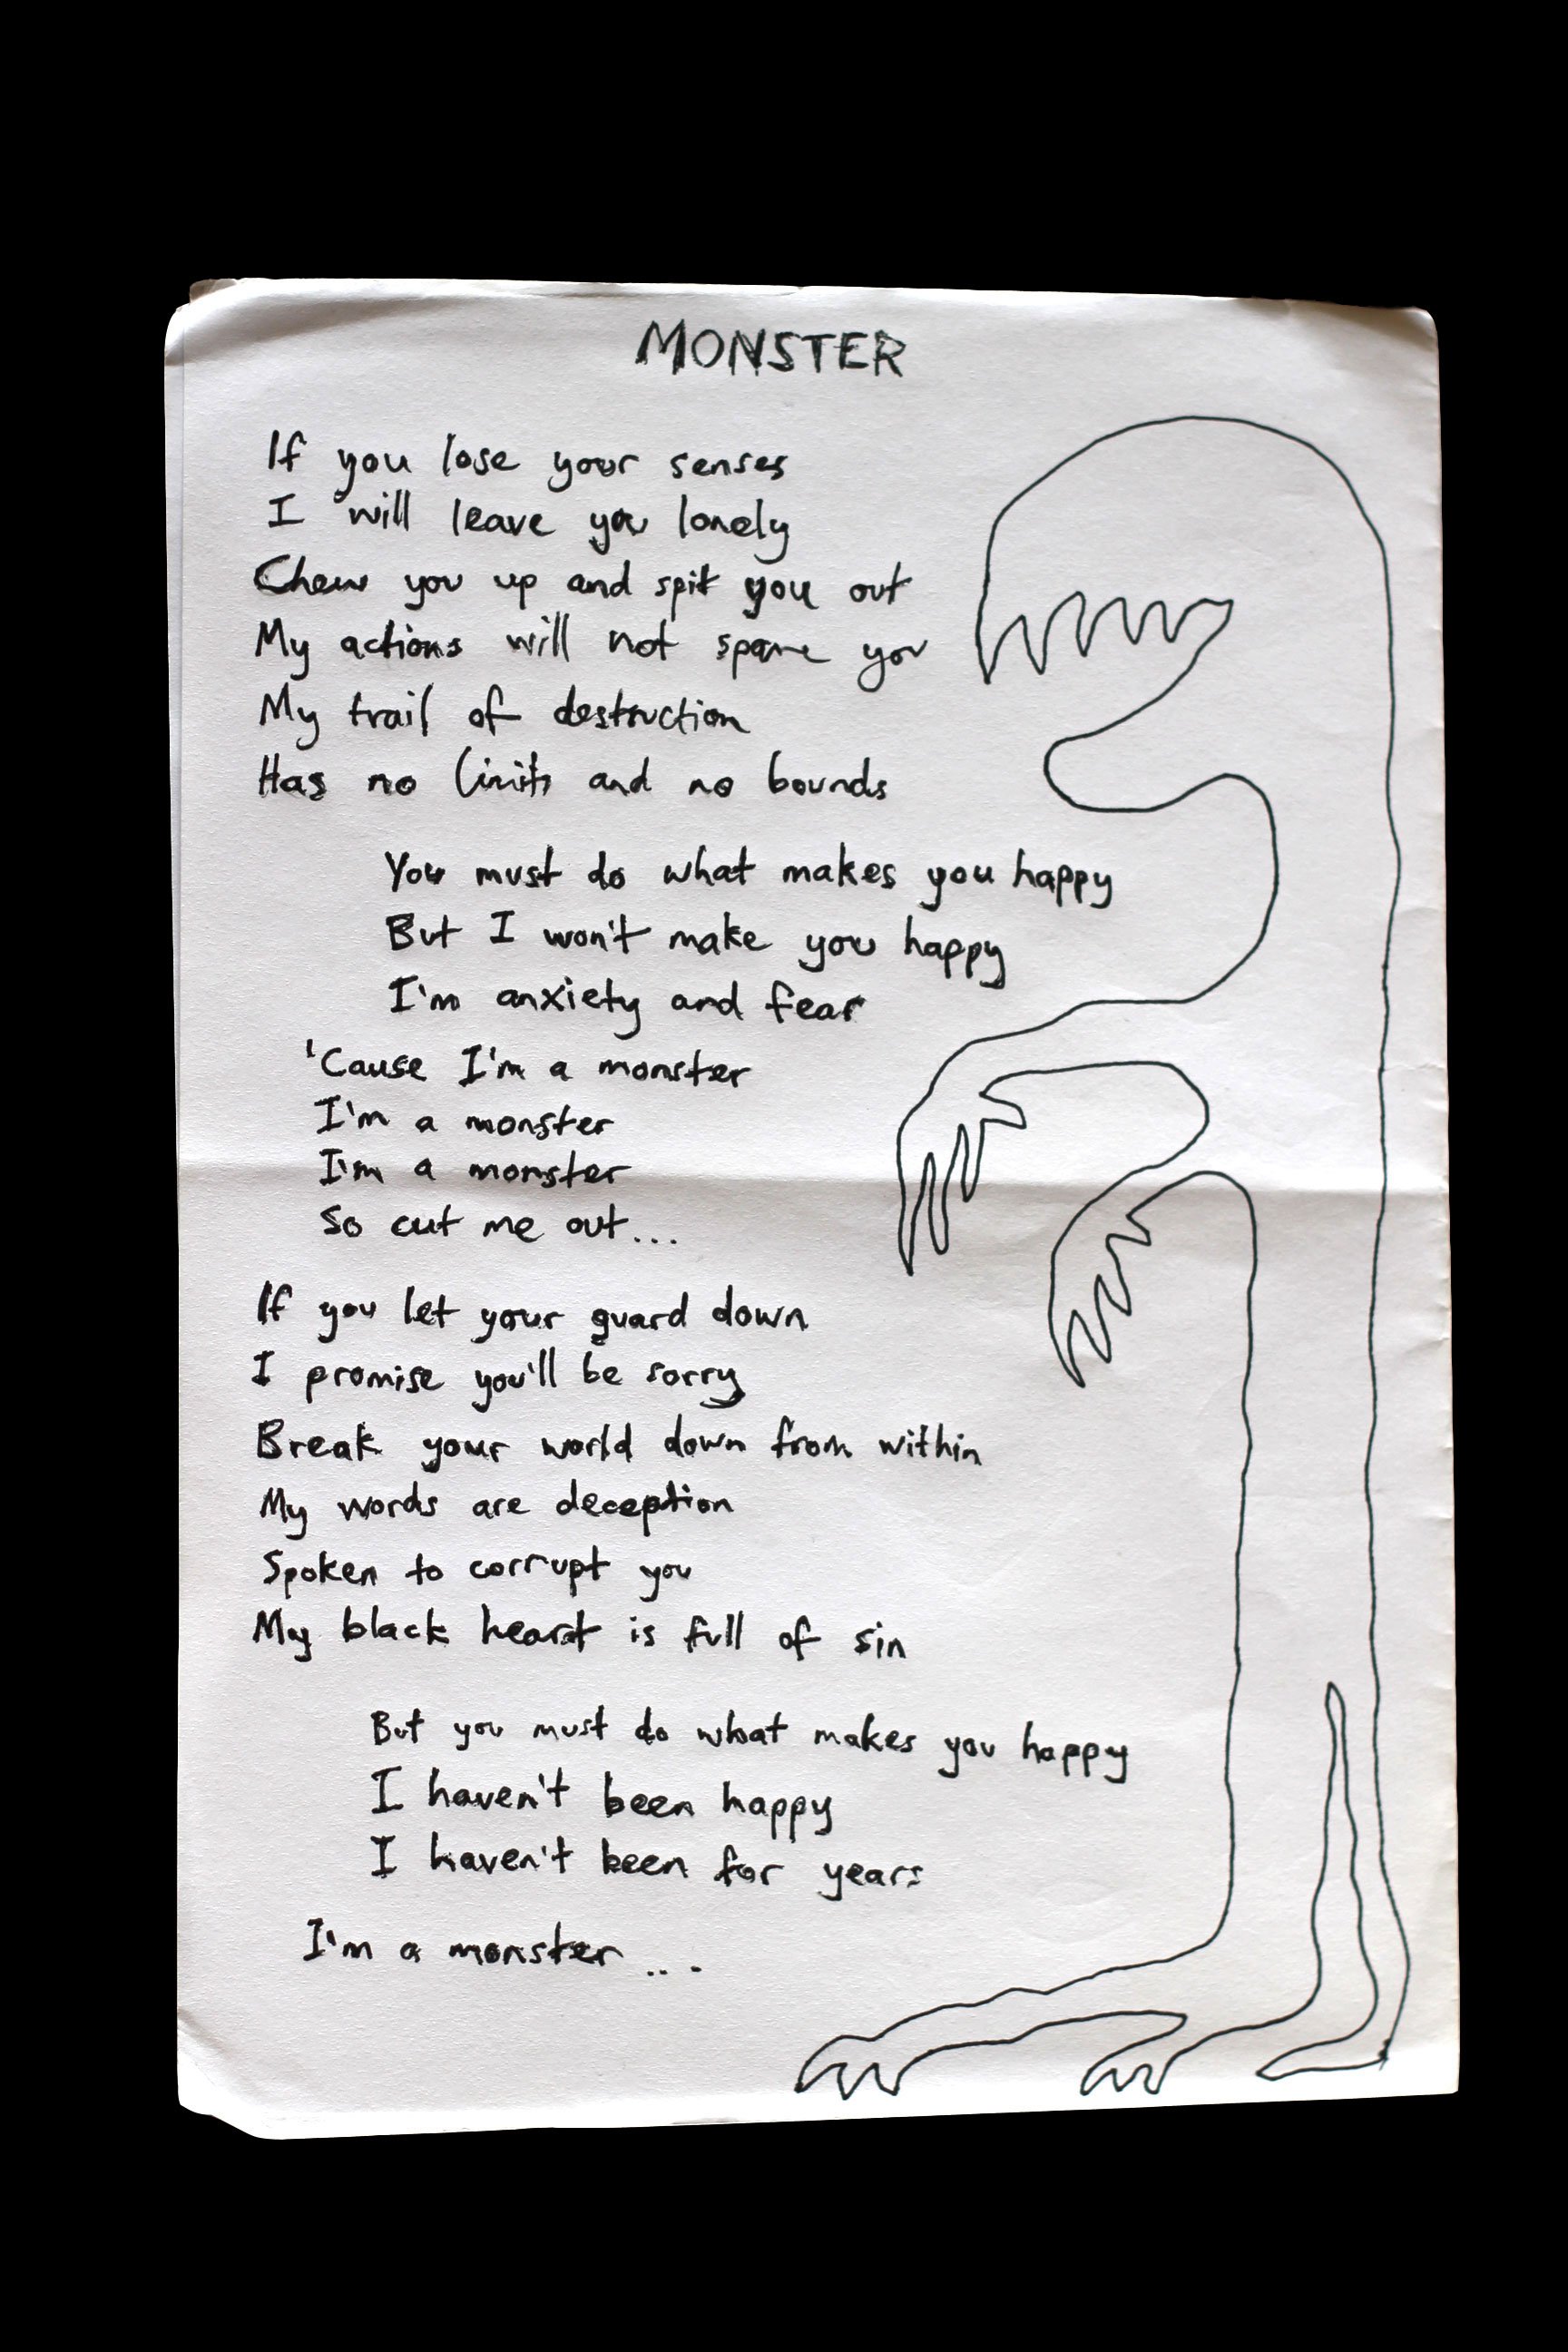 MONSTER
If you lose your senses
I will leave you lonely
Chew you up and spit you out
My actions will not spare you
My trail of destruction
Has no limits and no bounds
You must do what makes you happy
But I won't make you happy
I'm anxiety and fear
'Cause I'm a monster
I'm a monster
I'm a monster
So cut me out...
If you let your guard down
I promise you'll be sorry
Break your world down from within
My words are deception
Spoken to corrupt you
My black heart is full of sin
But you must do what makes you happy
I haven't been happy
I haven't been for years
I'm a monster...